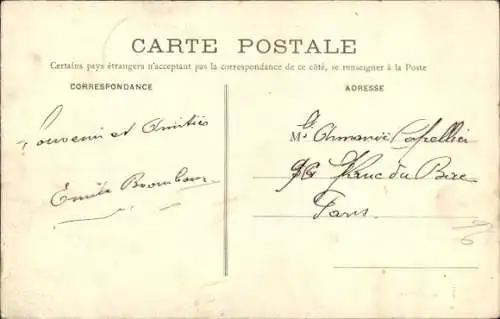 CARTE POSTALE
Certains pays étrangers n'acceptant pas la correspondance de ce côté, se renseigner à la Poste
CORRESPONDANCE
ADRESSE
Souvenir et Amitiés
Emile
M
96 Rue du Bac
Paris